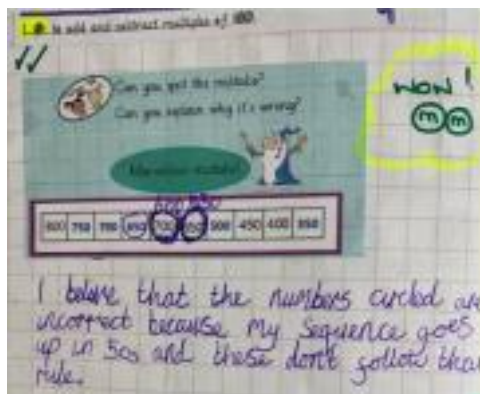 to add and subtract multiples of 100.
Can you spot the mistake?
Can you explain why it's wrong?
WOW!
m m
800 750 700 650 700 550 500 450 400 350
I beleive that the numbers circled are
incorrect because my sequence goes
up in 50s and these don't follow that
rule.